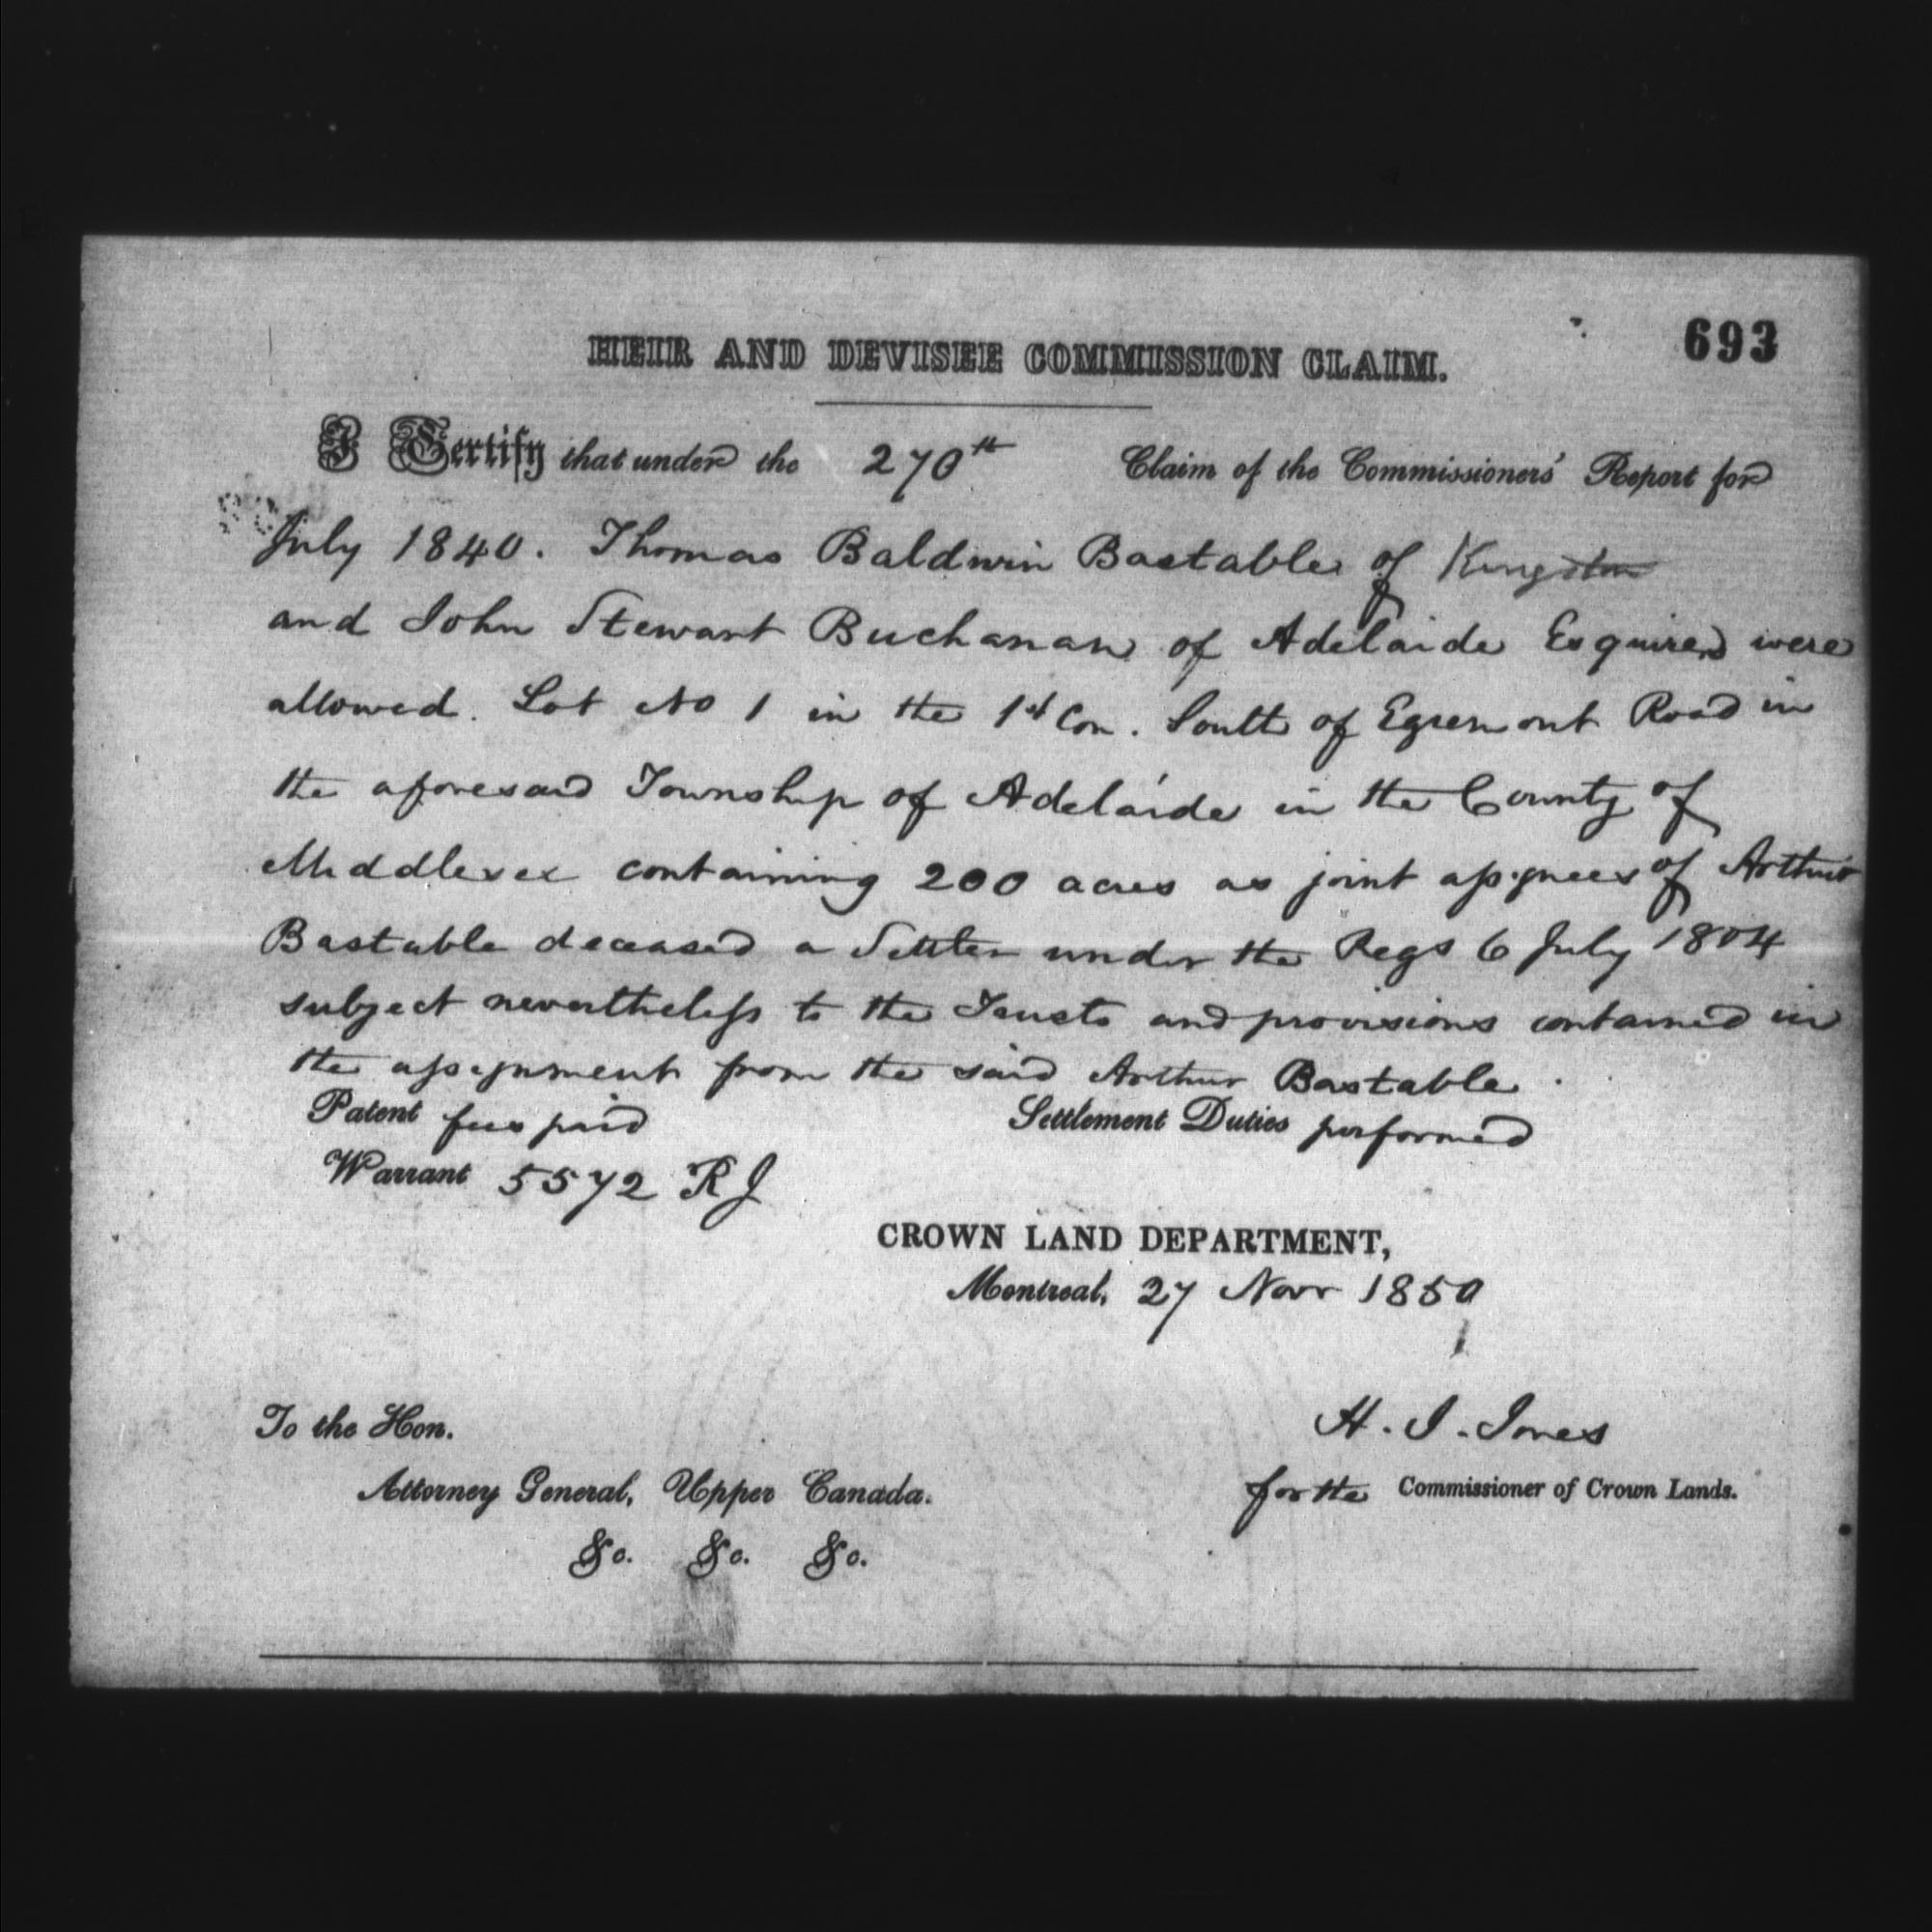 693
HEIR AND DEVISEE COMMISSION CLAIM.
I Certify that under the 270th Claim of the Commissioners' Report for
July 1840. Thomas Baldwin Bastable of Kingston
and John Stewart Buchanan of Adelaide Esquires were
allowed. Lot No 1 in the 1st Con. South of Egremont Road in
the aforesaid Township of Adelaide in the County of
Middlesex containing 200 acres as joint assignees of Arthur
Bastable deceased a Settler under the Regs 6 July 1804
subject nevertheless to the Trusts and provisions contained in
the assignment from the said Arthur Bastable.
Patent fees paid Settlement Duties performed
Warrant 5572 RJ
CROWN LAND DEPARTMENT,
Montreal, 27 Novr 1850
To the Hon. H. J. Jones
Attorney General, Upper Canada. for the Commissioner of Crown Lands.
&c. &c. &c.